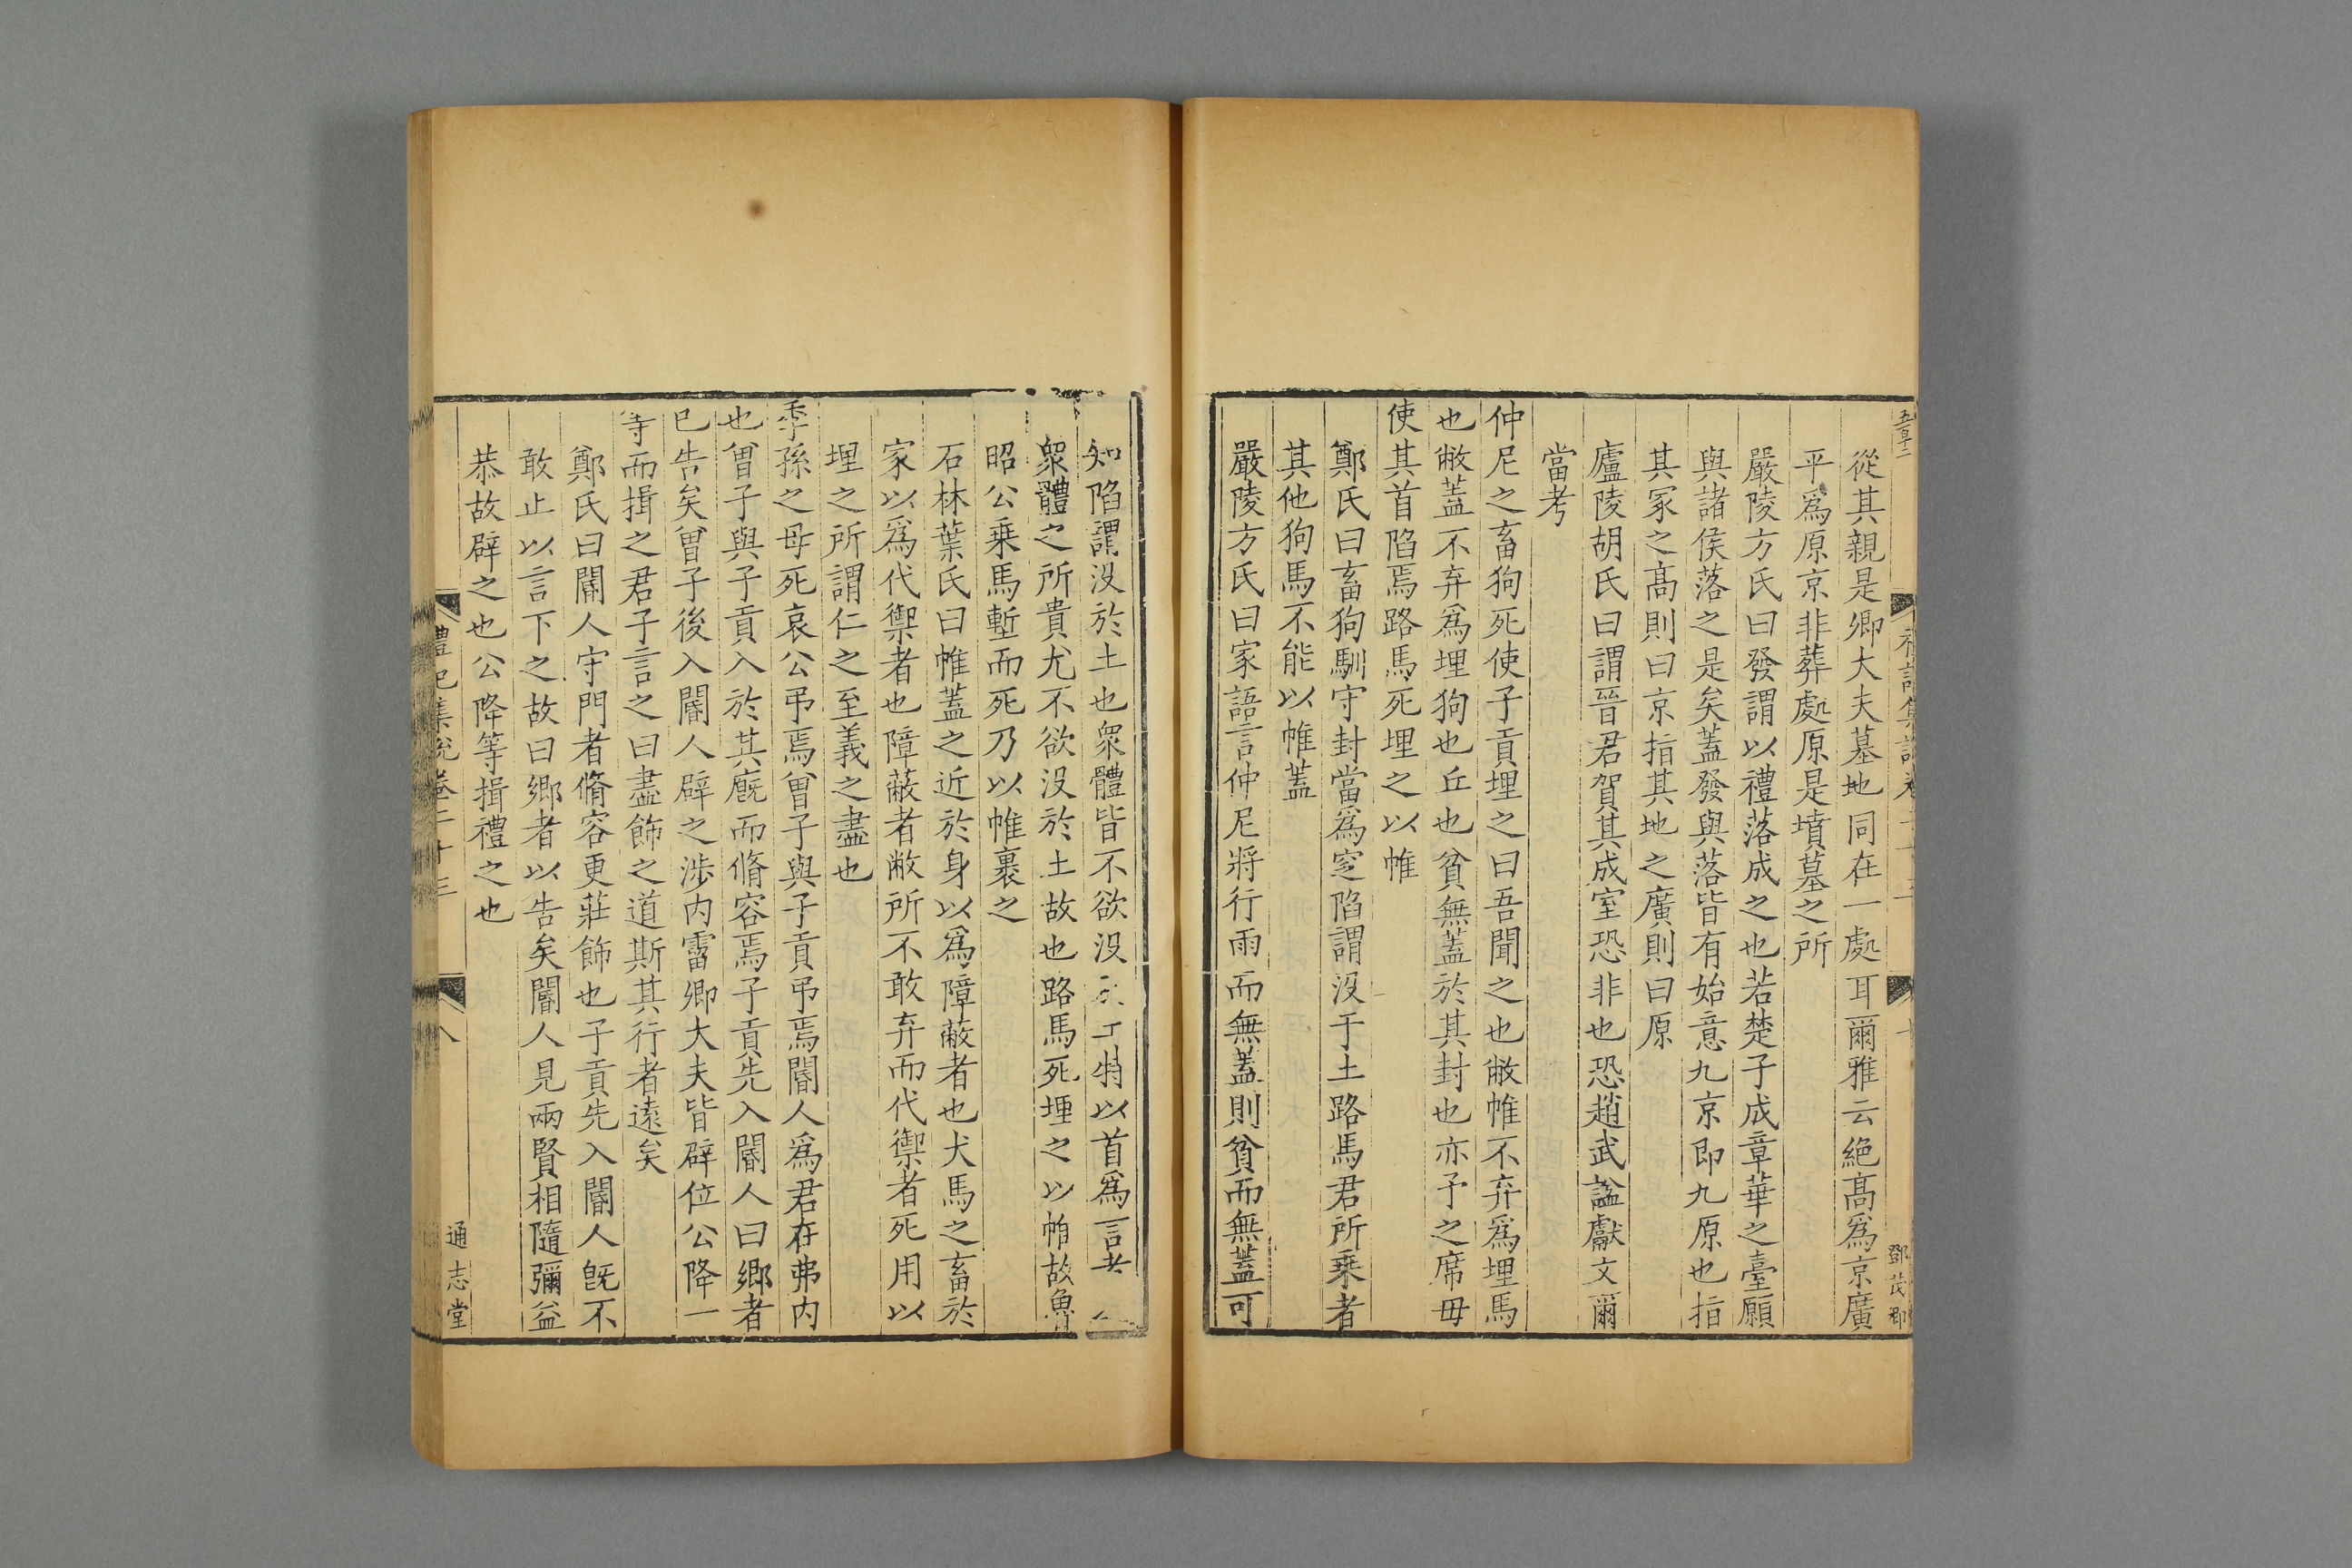 從其親是卿大夫墓地同在一處耳爾雅云絶髙爲京廣
平爲原京非葬處原是墳墓之所
嚴陵方氏曰發謂以禮落成之也若楚子成章華之臺願
與諸侯落之是矣蓋發與落皆有始意九京即九原也指
其冢之髙則曰京指其地之廣則曰原
廬陵胡氏曰謂晉君賀其成室恐非也恐趙武諡獻文爾
當考
仲尼之畜狗死使子貢埋之曰吾聞之也敝帷不弃爲埋馬
也敝蓋不弃爲埋狗也丘也貧無蓋於其封也亦予之席毋
使其首陷焉路馬死埋之以帷
鄭氏曰畜狗馴守封當爲窆陷謂沒于土路馬君所乗者
其他狗馬不能以帷蓋
嚴陵方氏曰家語言仲尼將行雨而無蓋則貧而無蓋可
知陷謂沒於土也衆體皆不欲沒 特以首爲言者
衆體之所貴尤不欲沒於土故也路馬死埋之以帷故魯
昭公乗馬塹而死乃以帷裹之
石林葉氏曰帷蓋之近於身以爲障蔽者也犬馬之畜於
家以爲代禦者也障蔽者敝所不敢弃而代禦者死用以
埋之所謂仁之至義之盡也
季孫之母死哀公弔焉曾子與子貢弔焉閽人爲君在弗内
也曾子與子貢入於其廐而脩容焉子貢先入閽人曰鄉者
已告矣曾子後入閽人辟之涉内霤卿大夫皆辟位公降一
等而揖之君子言之曰盡飾之道斯其行者遠矣
鄭氏曰閽人守門者脩容更莊飾也子貢先入閽人旣不
敢止以言下之故曰鄉者以告矣閽人見兩賢相隨彌益
恭故辟之也公降等揖禮之也
禮記集說卷二十三
八
通志堂